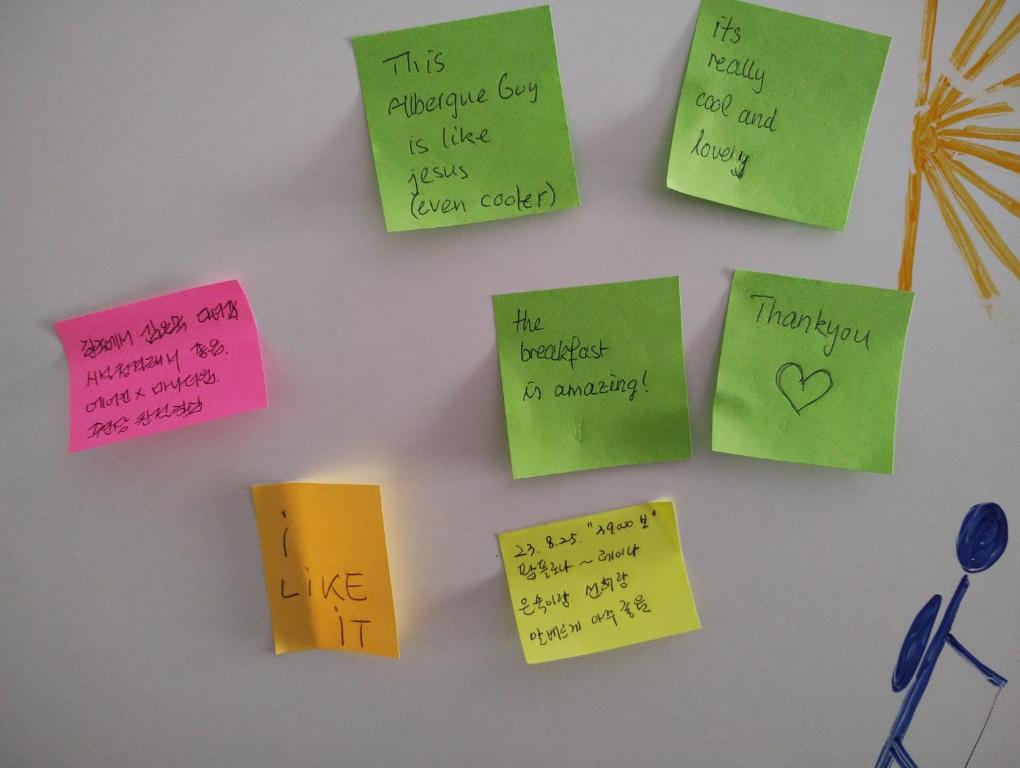 This
Albergue Guy
is like
jesus
(even cooler)
its
really
cool and
lovely
the
breakfast
is amazing!
Thankyou
대비함
시설침대에서 좋음.
에어컨 x
완전
i
LiKE
iT
23. 8.25. "39,000 보"
팜플로나 ~ 레이나
은숙이랑 선희랑
알베르게 아주 좋음